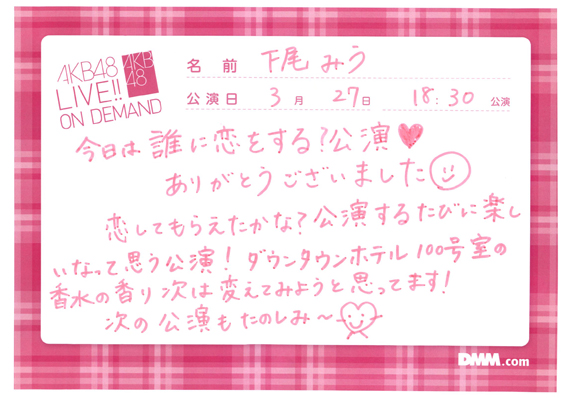 AKB48
LIVE!!
ON DEMAND
AKB
48
名前 下尾みう
公演日 3月27日 18:30公演
今日は誰に恋をする?公演
ありがとうございました
恋してもらえたかな?公演するたびに楽し
いなって思う公演!ダウンタウンホテル100号室の
香水の香り次は変えてみようと思ってます!
次の公演もたのしみ~
DMM.com